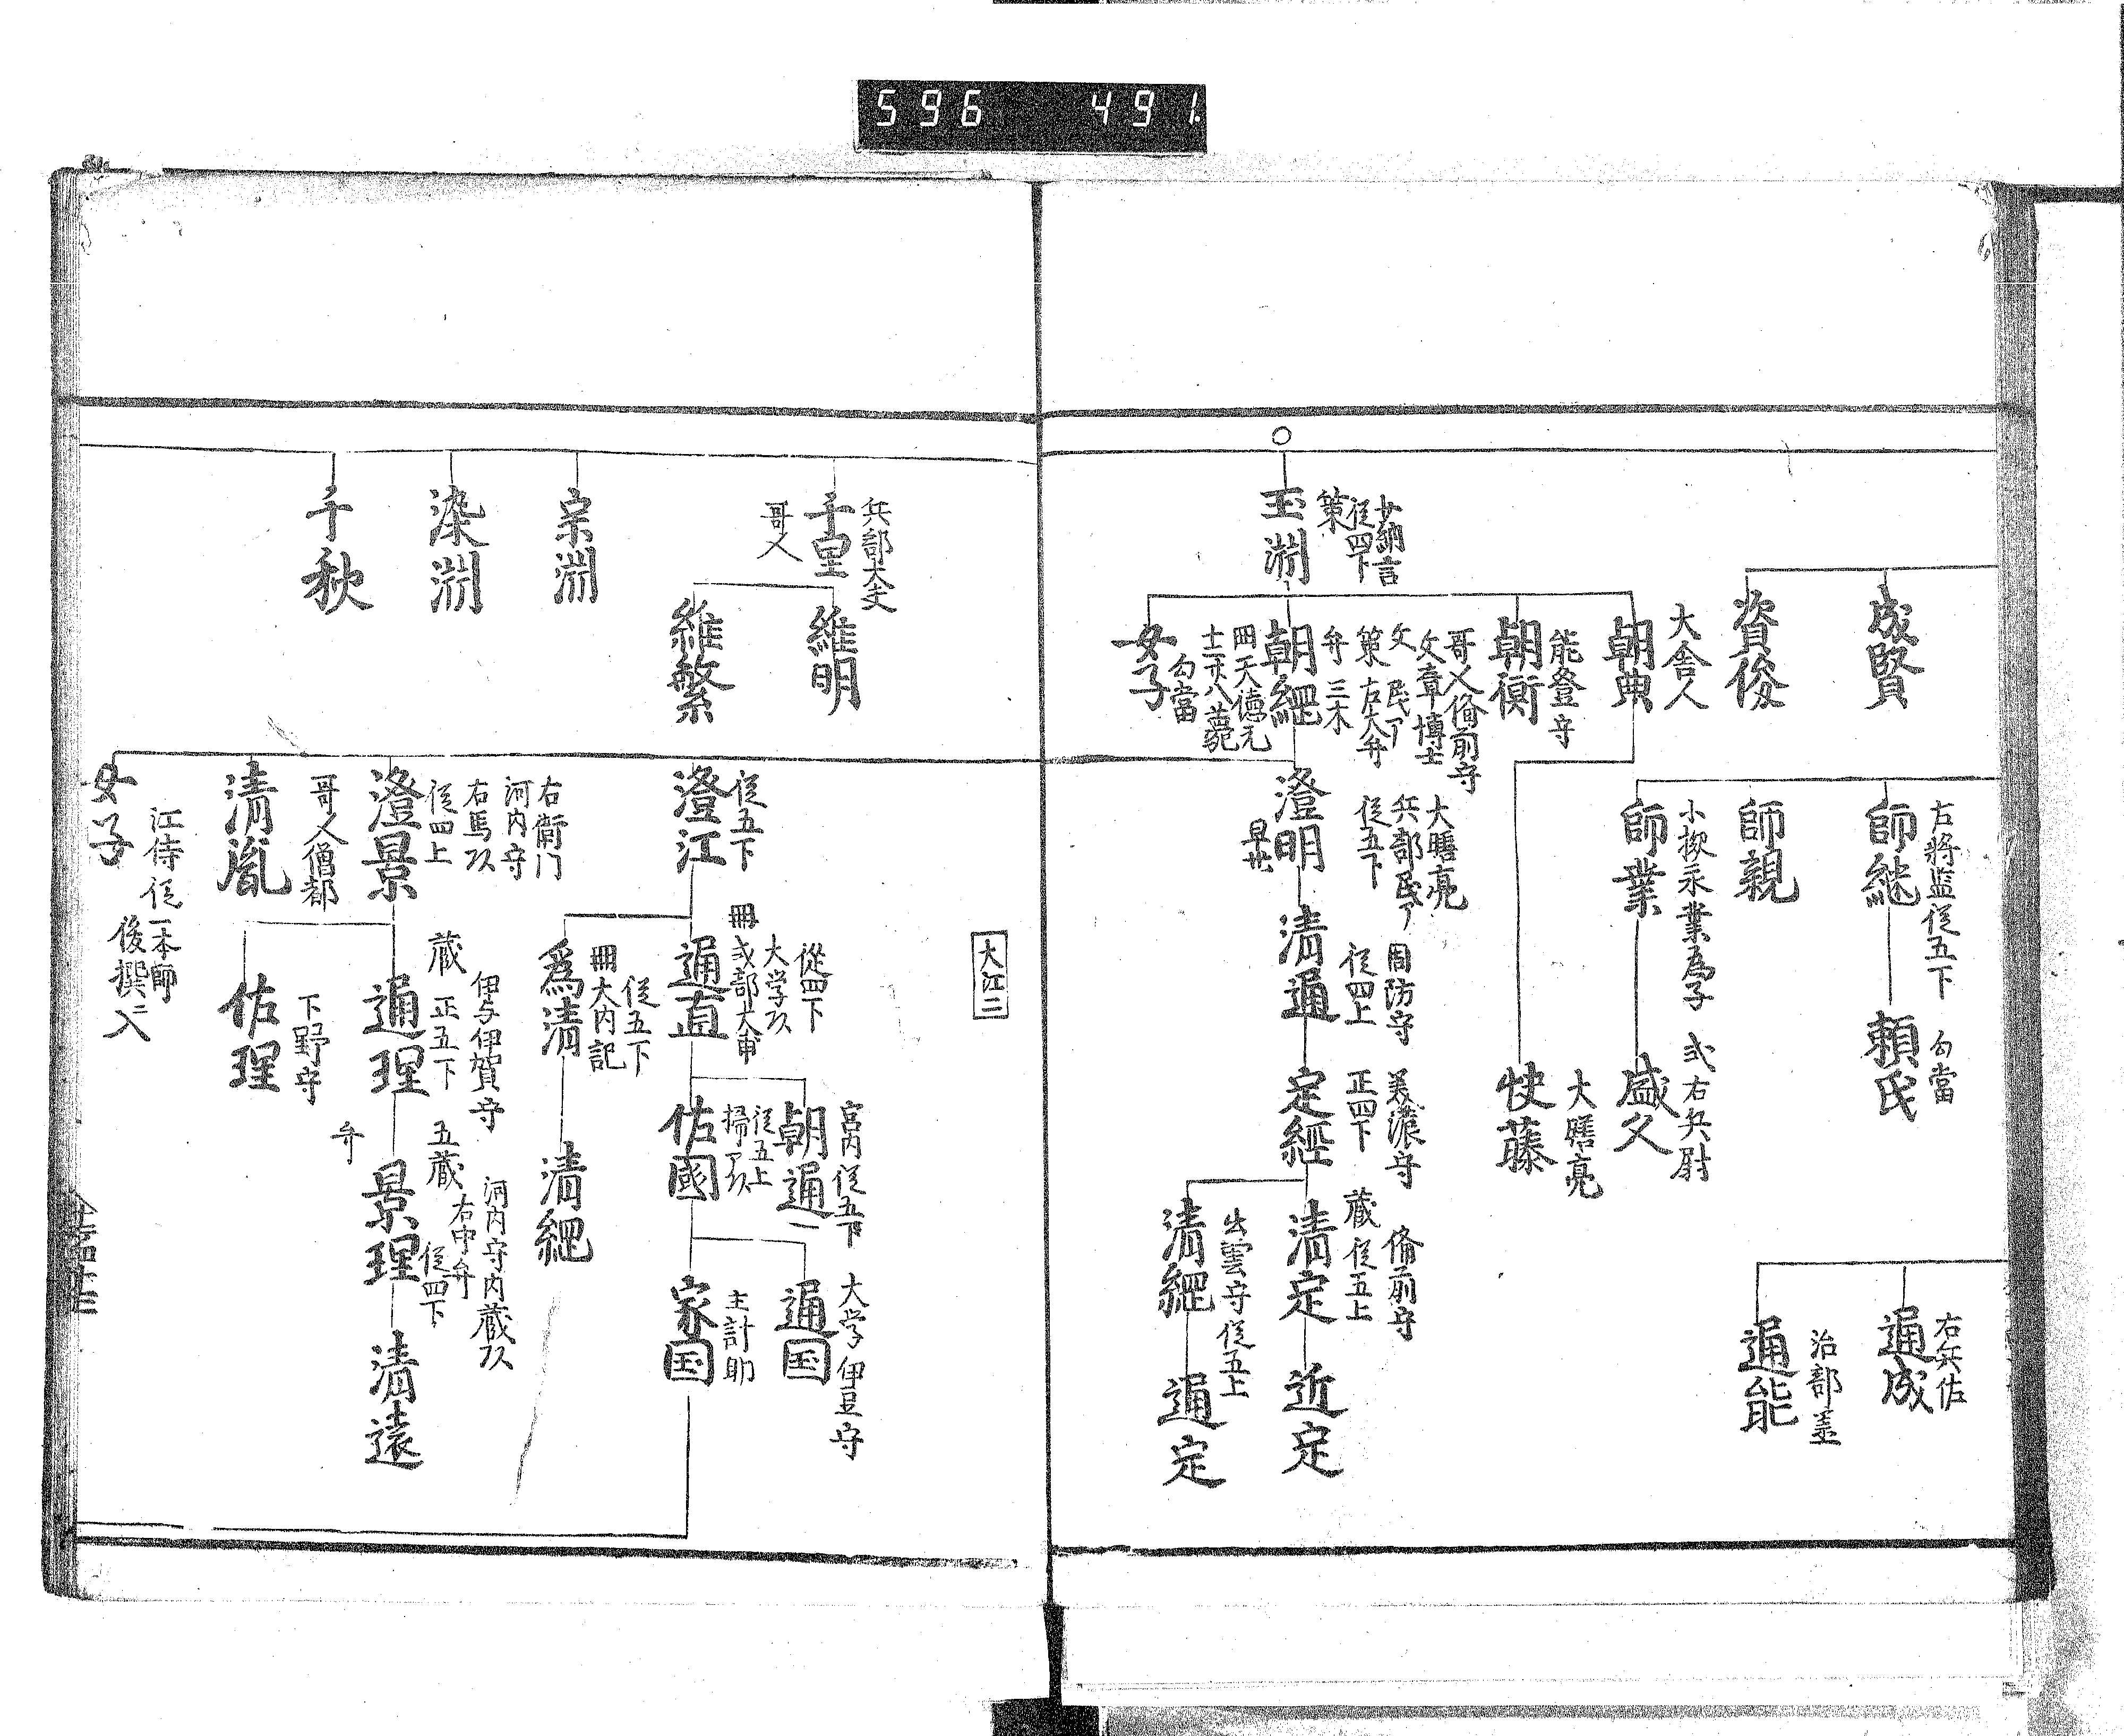 596 491.
成賢
資俊
大舎人
朝典
能登守
朝衡
少納言
従四下
策
玉淵
哥人備前守
文章博士
文 民ア
策 左大弁
弁 三木
朝綱
四天徳元
勾當
女子
左将監従五下
師継
勾當
頼氏
師親
師業
弐右兵尉
盛父
大膳亮
快藤
大膳亮
兵部民ア
従五下
澄明
早世
周防守
従四上
清通
美濃守
正四下
定経
備前守
蔵従五上
清定
近定
出雲守従五上
清綱
通定
右兵佐
通成
治部丞
通能
大江二
兵部大夫
千里
哥人
維明
維繁
宗淵
染淵
千秋
従五下
澄江
従四下
大学頭
通直
宮内従五下
朝通
従五上
佐國
大学伊豆守
通国
主計助
家国
従五下
大内記
為清
清綱
右衛门
河内守
右馬頭
従四上
澄景
伊与伊賀守
蔵 正五下
通理
河内守内蔵頭
五蔵
右中弁
従四下
弁
景理
清遠
下野守
佐理
哥人僧都
清胤
女子
江侍従一本師
後撰ニ入